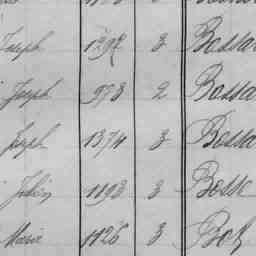 Joseph 1294 3 Bossa
Joseph 973 2 Bossa
Joseph 1374 3 Bossa
Julien 1193 3 Bosse
Marie 1126 3